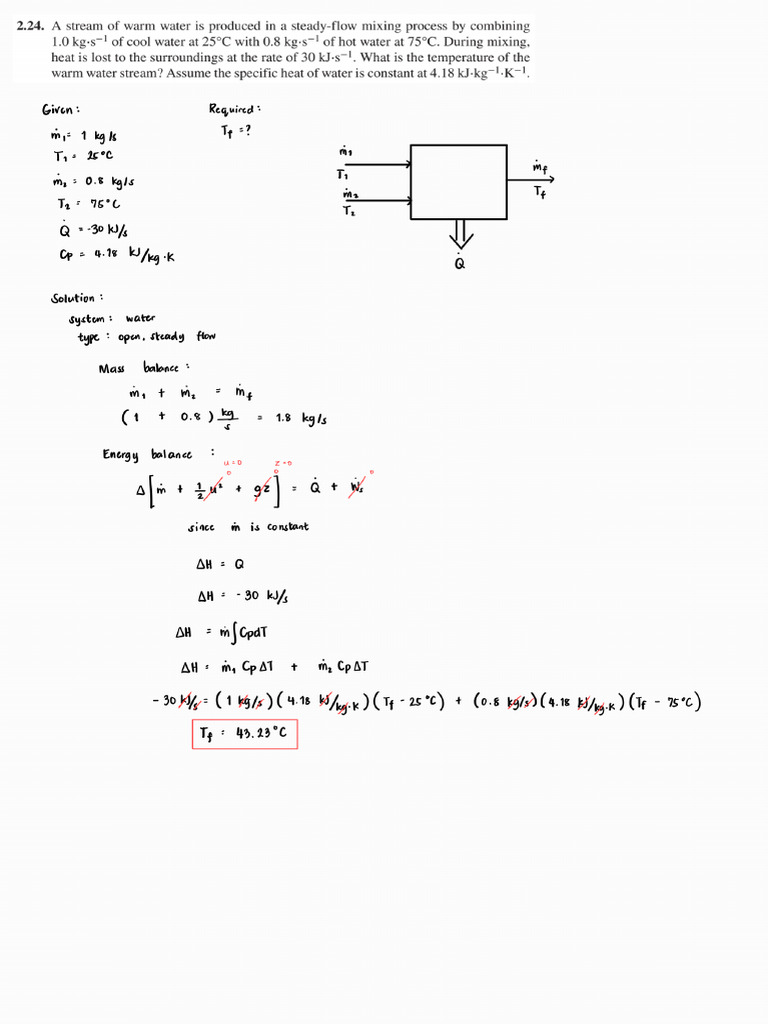 2.24. A stream of warm water is produced in a steady-flow mixing process by combining
1.0 kg·s⁻¹ of cool water at 25°C with 0.8 kg·s⁻¹ of hot water at 75°C. During mixing,
heat is lost to the surroundings at the rate of 30 kJ·s⁻¹. What is the temperature of the
warm water stream? Assume the specific heat of water is constant at 4.18 kJ·kg⁻¹·K⁻¹.
Given :
ṁ₁ = 1 kg/s
T₁ = 25°C
ṁ₂ = 0.8 kg/s
T₂ = 75°C
Q̇ = -30 kJ/s
Cp = 4.18 kJ/kg·K
Required :
Tf = ?
ṁ₁
T₁
ṁ₂
T₂
ṁf
Tf
Q̇
Solution :
system : water
type : open, steady flow
Mass balance :
ṁ₁ + ṁ₂ = ṁf
(1 + 0.8) kg/s = 1.8 kg/s
Energy balance :
u=0 z=0
0 0 0
Δ[ṁ + 1/2 u² + gz] = Q̇ + Ẇs
since ṁ is constant
ΔH = Q
ΔH = -30 kJ/s
ΔH = ṁ∫CpdT
ΔH = ṁ₁ CpΔT + ṁ₂ CpΔT
-30 kJ/s = (1 kg/s)(4.18 kJ/kg·K)(Tf - 25°C) + (0.8 kg/s)(4.18 kJ/kg·K)(Tf - 75°C)
Tf = 43.23°C